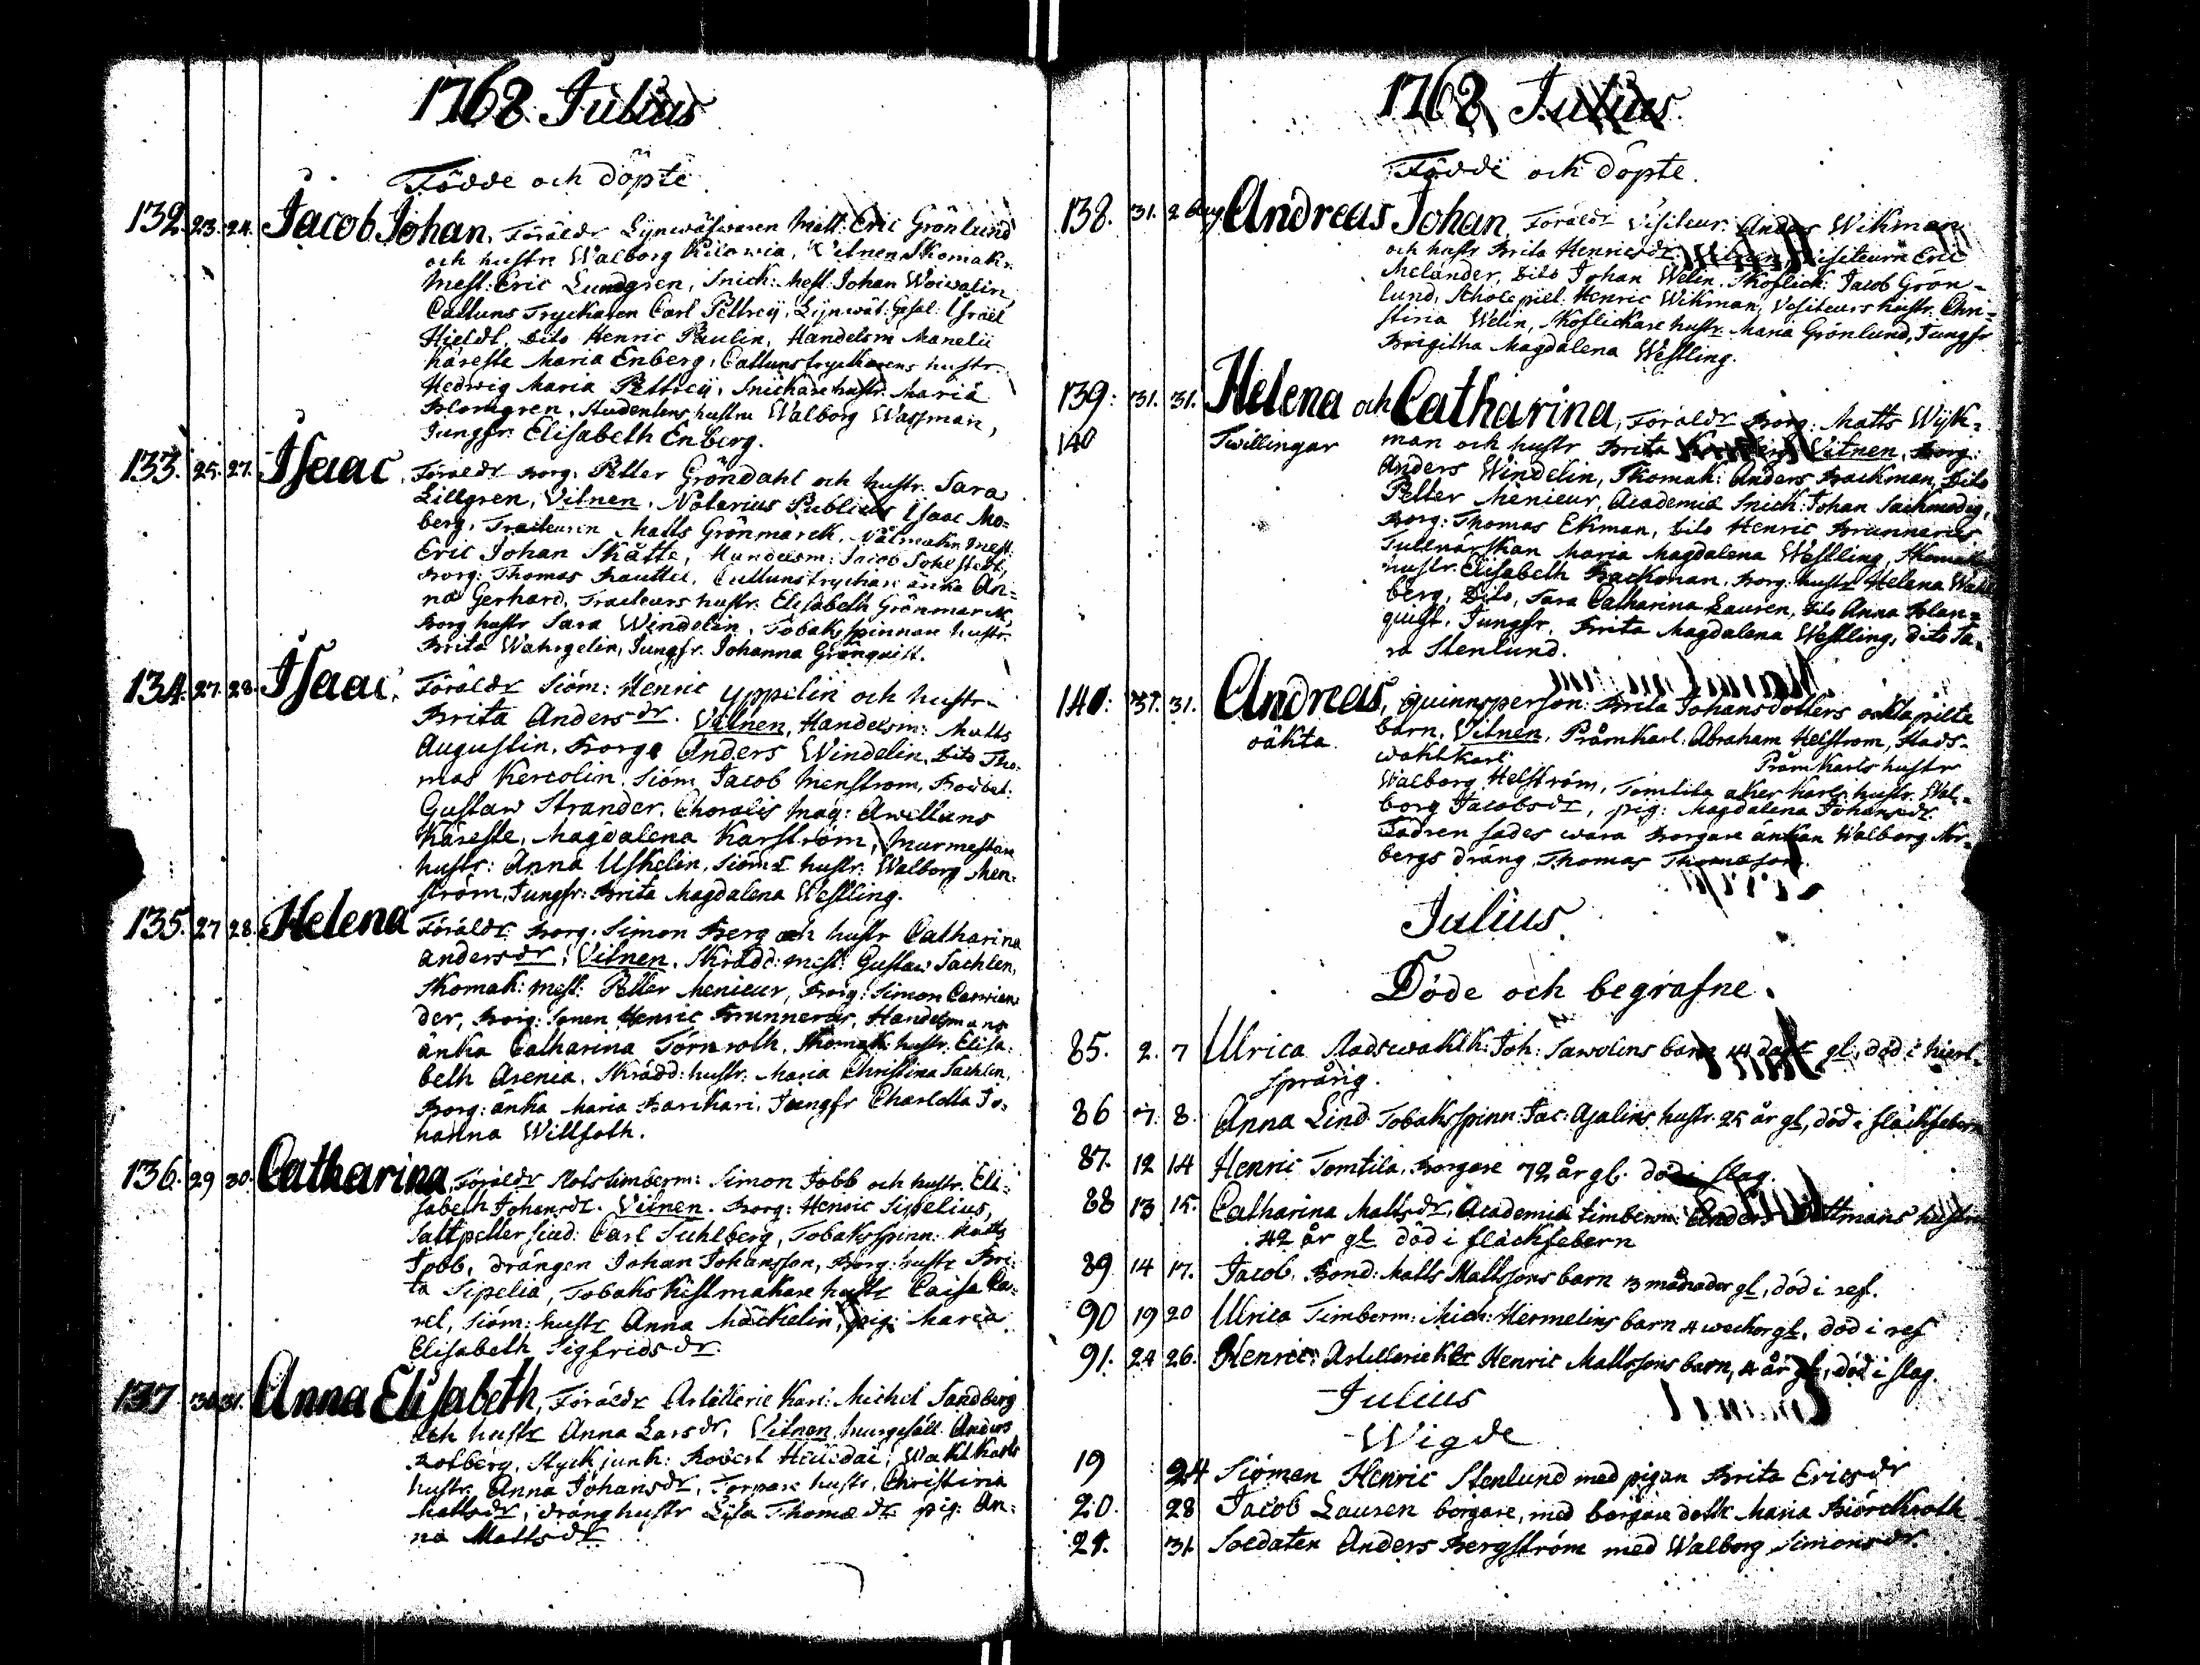 1768. Julius
Födde och döpte
132. 23. 24. Jacob Johan, Föräldr Lijnwäfwaren Mäst: Eric Grönlund
och hustru Walborg Kilavia, Vitnen Skomak:
Mest: Eric Lundgren, Snick: Mest: Johan Woivalin,
Cattuns Tryckaren Carl Pettreij, Lijnwäf: Gesäl: Israel
Hieldt, Dito Henric Paulin, Handelsm Manelii
Käreste Maria Enberg, Cattunstryckarens hustr.
Hedwig Maria Pettreij, Snickare hustr Maria
Blomgren, Studentens hustru Walborg Wassman,
Jungfr. Elisabeth Enberg.
133. 25. 27. Isaac, Föräldr Borg: Petter Gröndahl och hustr. Sara
Lillgren, Vitnen, Notarius Publicus Isaac Mo=
berg, Tracteuren Matts Grönmarck, Mest:
Eric Johan Skätte, Handelsm: Jacob Sohlstedt,
Borg: Thomas Cattunstryckare änka An=
na Gerhard, Tracteurs hustr. Elisabeth Grönmarck
Borg hustr Sara Windelin, Tobaksspinnan hustr.
Brita Wahrgelin, Jungfr. Johanna Grönquist.
134. 27. 28. Isaac, Föräldr Siöm: Henric Yppelin och hustr.
Brita Andersdr. Vitnen, Handelsm: Matts
Augustin, Borga Anders Windelin, Dito Tho=
mas Kerolin, Siöm Jacob Menstrom,
Gustaw Strander, Choralis Mag: Awellans
Käreste, Magdalena Karström, Murmestan
hustr: Anna Uskelin, Siömr hustr. Walborg Men=
ström, Jungfr: Brita Magdalena Westling.
135. 27 28. Helena Föräldr Borg: Simon Berg och hustr Catharina
andersdr, Vitnen, Skrädd: mest: Gustaw Sachlen,
Skomak: mest: Petter Menieur, Borg: Simon
der, Borg: Sonen Henric Brunnerus, Handelsmans
änka Catharina Törnroth, Skomak: hustr: Elisa:
beth Asenia, Skrädd: hustr: Maria Christina Sachlin,
Borg: änka Maria Barckari, Jungfr Charlotta Jo=
hanna Willfoth.
136. 29 30. Catharina, Föräldr Slotstimberm: Simon Jobb och hustr. Eli=
sabeth Johansdr. Vitnen. Borg: Henric Sipelius,
Saltpettersiud: Carl Suhlberg, Tobaksspinn: Matts
Jobb, drängen Johan Johansson, Borg: hustr Bri=
ta Sipelia, Tobaks Kistmakare hustr Caisa Ca=
rel, Siöm: hustr Anna Mäckelin, pig: Maria
Elisabeth Sigfridsdr.
137 30 31. Anna Elisabeth, Föräldr Artillerie Karl: Michel Sandberg
och hustr Anna Larsdr, Vitnen, Murgesäll Anders
Rotberg, Styckjunk: Robert Wakt Karls
hustr. Anna Johansdr, Torpare hustr, Christina
Mattsdr, dränghustr Lisa Thomædr pig: An=
na Mattsdr
1768. Julius.
Födde och döpte.
138. 31. 2 Aug. Andreas Johan, Föräldr Visiteur: Anders Wikman
och hustr Brita Henricsdr. Visiteurn Eric
Melander, Dito Johan Welin, Skoflick: Jacob Grön=
lund, Henric Wikman, Visiteurs hustr. Chri=
stina Welin, Skoflickare hustr. Maria Grönlund, Jungfr
Brigitha Magdalena Westling.
139: 31. 31. Helena och Catharina, Föräldr Borg: Matts Wijk=
140 Twillingar man och hustr Brita Vitnen, Borg:
Anders Windelin, Skomak: Anders Backman, Dito
Petter Menieur, Academiæ Snick: Johan Sackmodig,
Borg: Thomas Ekman, Dito Henric Brunnerus
Tullnärskan Maria Magdalena Westling,
hustr. Elisabeth Backman, Borg: hustr Helena Wahl
berg, Dito, Sara Catharina Lauren, Dito Anna Blan=
quist, Jungfr. Brita Magdalena Westling, Dito Sa=
ra Stenlund.
141: 31. 31. Andreas, Quinnsperson: Brita Johansdotters oäkta pilte
oäkta. barn, Vitnen, Pråmkarl: Abraham Helstrom, Stads=
waktkarl Pråmkarls hustr
Walborg Helström, Tomtita åkerkarls hustr. Wal=
borg Jacobsdr, pig: Magdalena Johansdr.
Fadren sades wara Borgare änkan Walborg Nor=
bergs dräng Thomas Thomæson.
Julius
Döde och begrafne.
85. 2. 7 Ulrica Stadswachtk: Joh: Sawolins barn 14 dagr gl, död i hiert=
språng.
86 7. 8. Anna Lind Tobaksspinn: Jac: Asalins hustr. 25 år gl, död i fläckfebern
87. 12 14 Henric Tomtila, Borgare 72 år gl. död i slag.
88 13 15. Catharina Mattsdr, Academiæ timberm: Anders hustru
42 år gl död i fläckfebern
89 14 17. Jacob, Bond: Matts Mattssons barn 3 månader gl, död i ref.
90 19 20 Ulrica Timberm: Mich: Hermelins barn 4 weckor gl, död i ref
91. 24 26. Henric: Artillerie Henric Mattssons barn, 4 år gl, död i slag.
Julius
Wigde
19 24 Siöman Henric Stenlund med pigan Brita Ericsdr
20. 28 Jacob Lauren borgare, med borgare dottr Maria Biörckroth
21. 31. Soldaten Anders Bergström med Walborg Simonsdr.